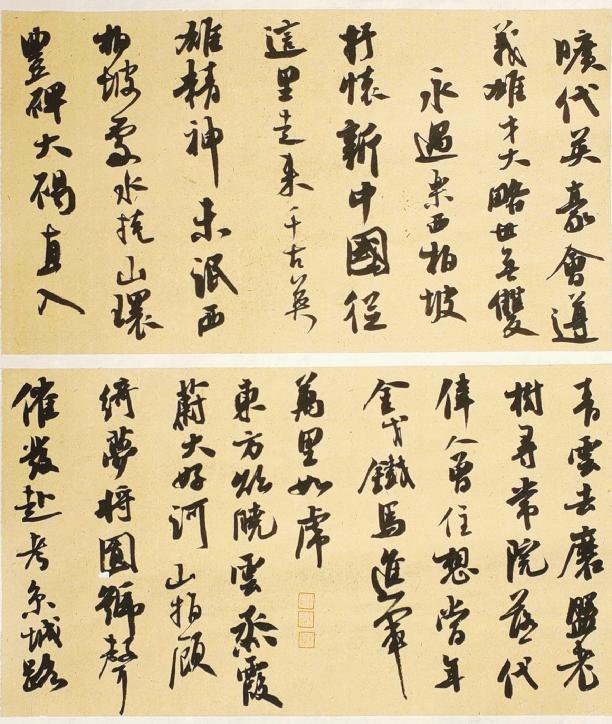 曠代英豪會遵
義雄才大略世无雙
永遇樂西柏坡
抒懷新中國從
這里走来千古英
雄精神未泯西
柏坡處水山環
豐碑大碣直入
青雲去磨盤老
樹尋常院落代
偉人曾住想當年
金戈鐵馬進軍
萬里如虎
東方欲曉雲蒸霞
蔚大好河山指顧
綺夢將圓號聲
催發赴考京城路